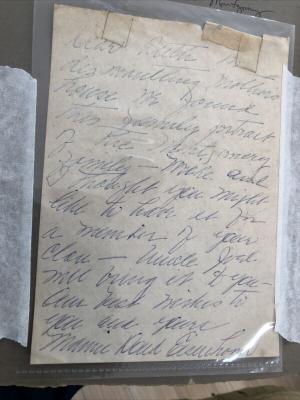 Montgomery
Dear Ruth
dismantling mothers
house we found
this family portrait
of the Montgomery
family - Mike and
I thought you might
like to have it for
a member of your
clan - Uncle Joel
will bring it to you
Our best wishes to
you and yours
Mamie Doud Eisenhower